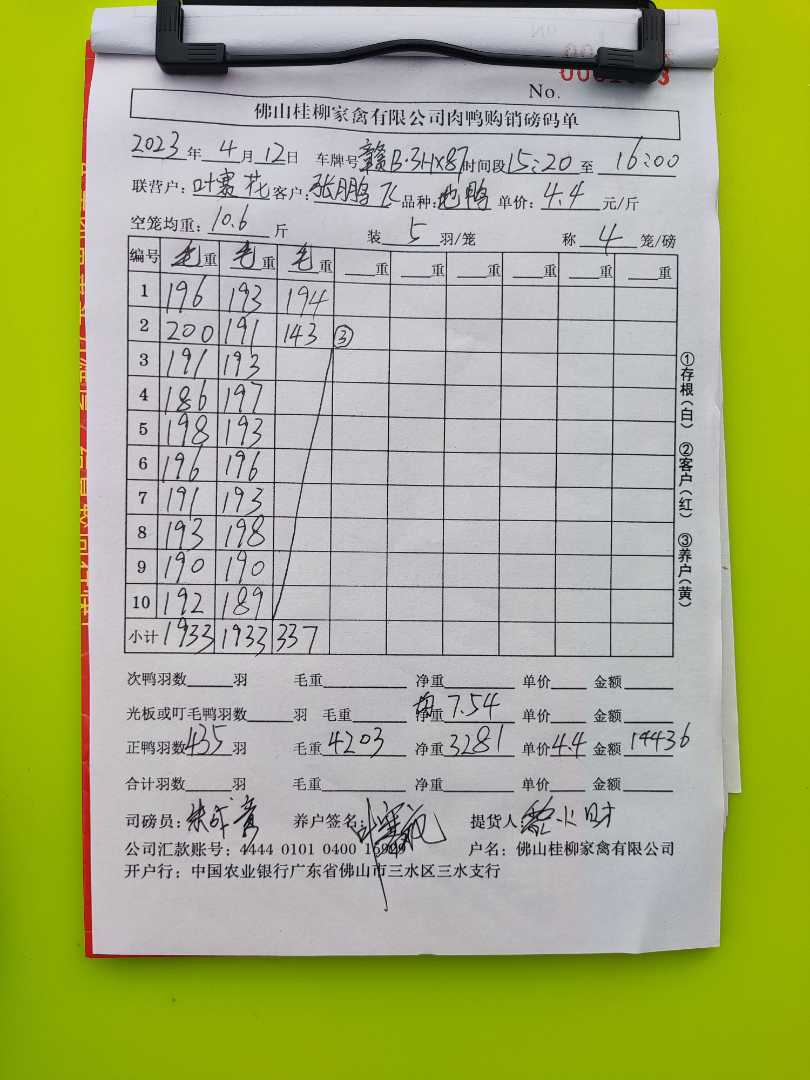 No.
佛山桂柳家禽有限公司肉鸭购销磅码单
2023年4月12日 车牌号赣B·3Hx87时间段15:20至16:00
联营户:叶赛花客户:张鹏飞品种:地鸭单价:4.4元/斤
空笼均重:10.6斤 装5羽/笼 称4笼/磅
编号 毛重 毛重 毛重 重 重 重 重 重 重
1 196 193 194
2 200 191 143 ③
3 191 193
4 186 197
5 198 193
6 196 196
7 191 193
8 193 198
9 190 190
10 192 189
小计 1933 1933 337
①存根(白) ②客户(红) ③养户(黄)
次鸭羽数 羽 毛重 净重 单价 金额
光板或叮毛鸭羽数 羽 毛重 均重7.54 单价 金额
正鸭羽数435羽 毛重4203 净重3281 单价4.4 金额14436
合计羽数 羽 毛重 净重 单价 金额
司磅员: 养户签名:叶赛花 提货人
公司汇款账号:4444 0101 0400 15909 户名:佛山桂柳家禽有限公司
开户行:中国农业银行广东省佛山市三水区三水支行